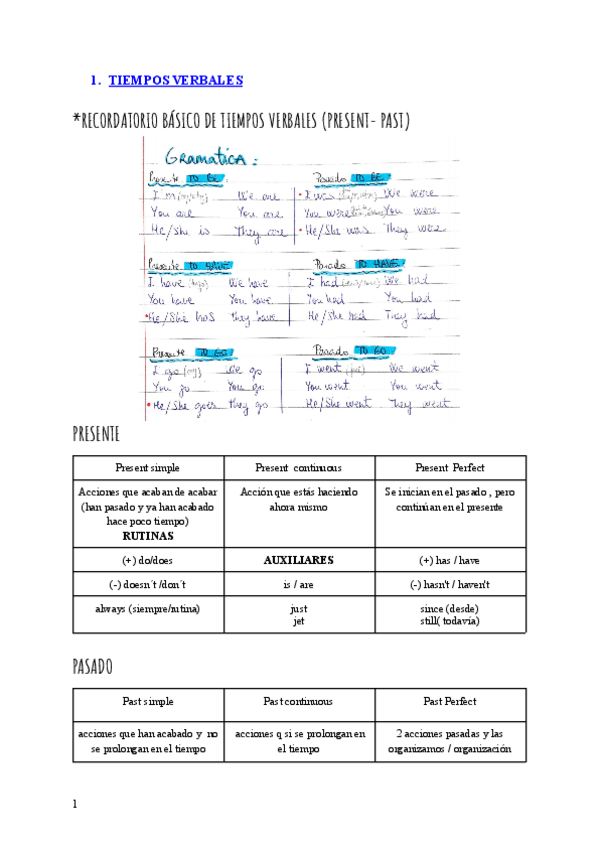 1. TIEMPOS VERBALES
*RECORDATORIO BÁSICO DE TIEMPOS VERBALES (PRESENT- PAST)
GRAMATICA:
Presente TO BE: Pasado TO BE:
I m We are I was We were
You are You are You were You were
He/She is They are He/She was They were
Presente TO HAVE Pasado TO HAVE
I have We have I had We had
You have You have You had You had
He/She has they have He/She had They had
Presente TO GO Pasado TO GO
I go We go I went We went
You go You go You went You went
He/She goes they go He/She went They went
PRESENTE
Present simple Present continuous Present Perfect
Acciones que acaban de acabar Acción que estás haciendo Se inician en el pasado , pero
(han pasado y ya han acabado ahora mismo continúan en el presente
hace poco tiempo)
RUTINAS
(+) do/does AUXILIARES (+) has / have
(-) doesn´t /don´t is / are (-) hasn't / haven't
always (siempre/rutina) just since (desde)
jet still( todavía)
PASADO
Past simple Past continuous Past Perfect
acciones que han acabado y no acciones q si se prolongan en 2 acciones pasadas y las
se prolongan en el tiempo el tiempo organizamos / organización
1